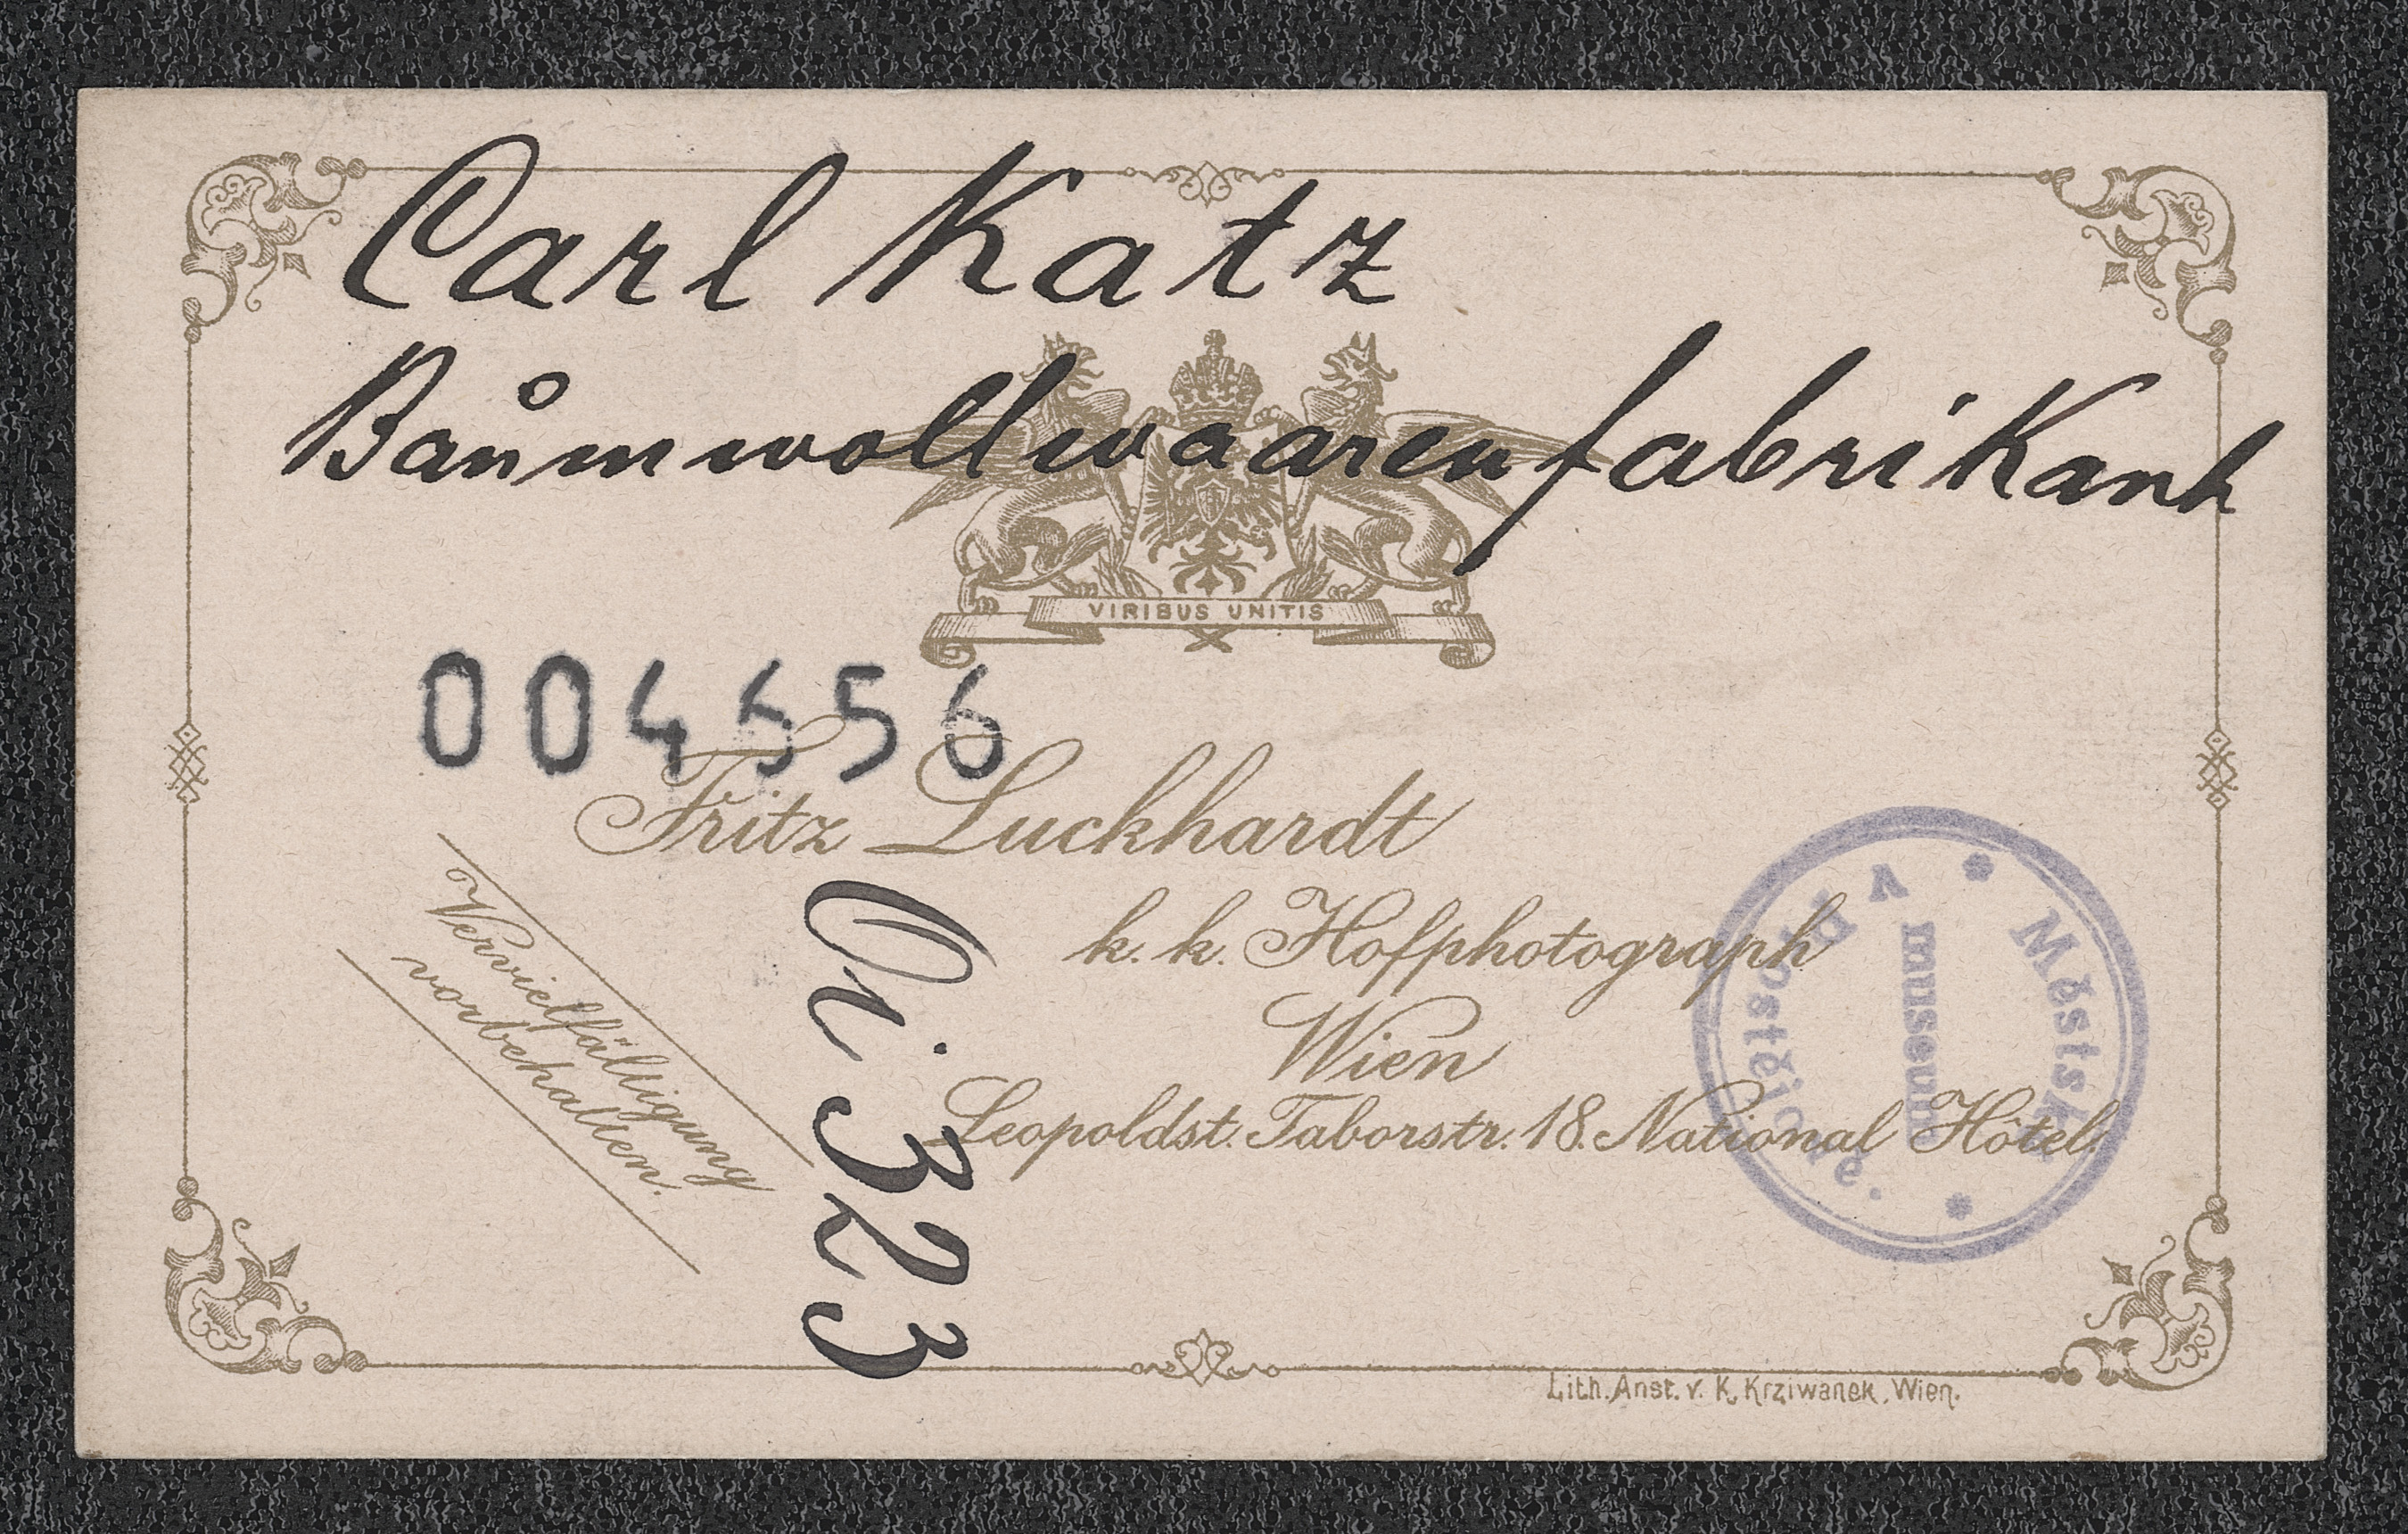 Carl Katz
Baumwollwaarenfabrikant
VIRIBUS UNITIS
004556
Fritz Luckhardt
k. k. Hofphotograph
Wien
Leopoldst. Taborstr. 18. National Hôtel.
Vervielfältigung
vorbehalten.
323
Městské
museum
v Prostějově.
Lith. Anst. v. K. Krziwanek, Wien.